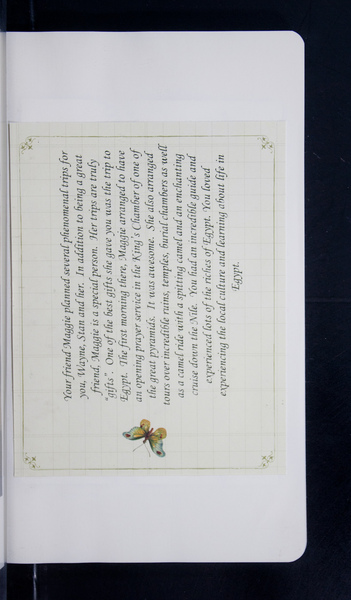 Your friend Maggie planned several phenomenal trips for
you, Wayne, Stan and her. In addition to being a great
friend, Maggie is a special person. Her trips are truly
"gifts". One of the best gifts she gave you was the trip to
Egypt. The first morning there, Maggie arranged to have
an opening prayer service in the King's Chamber of one of
the great pyramids. It was awesome. She also arranged
tours over incredible ruins, temples, burial chambers as well
as a camel ride with a spitting camel and an enchanting
cruise down the Nile. You had an incredible guide and
experienced lots of the riches of Egypt. You loved
experiencing the local culture and learning about life in
Egypt.